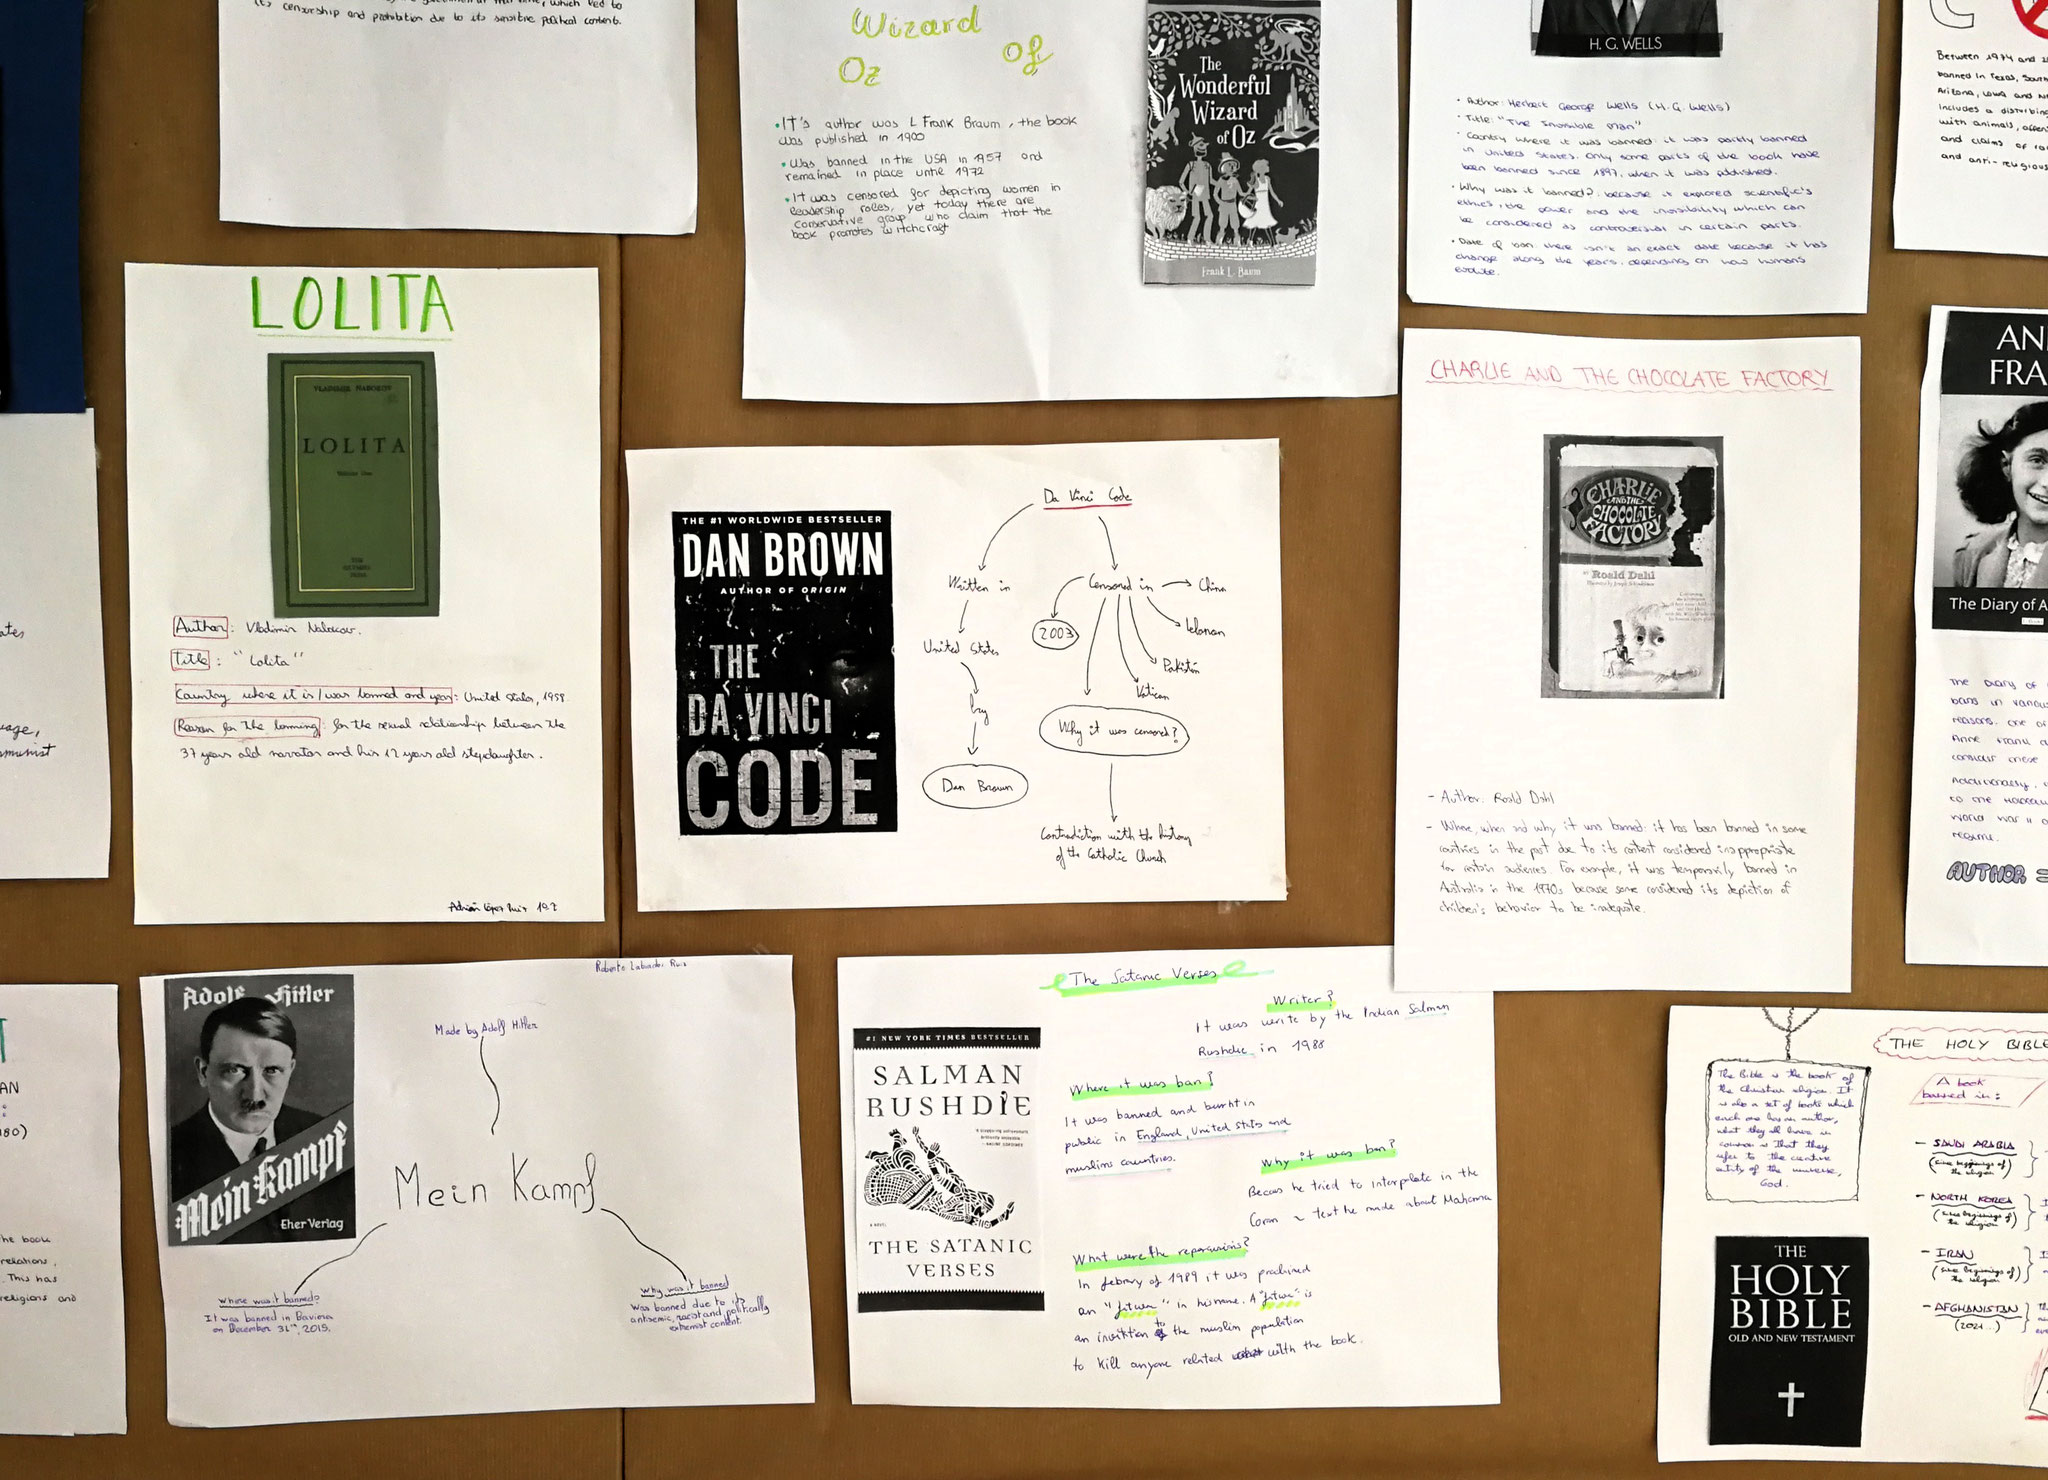 its censorship and prohibition due to its sensitive political content.
Wizard
Of
Oz
• It's author was L Frank Braum, the book
was published in 1900
• Was banned in the USA in 1957 and
remained in place until 1972
• It was censored for depicting women in
leadership roles, yet today there are
conservative group who claim that the
book promotes witchcraft
The
Wonderful
Wizard
of Oz
Frank L. Baum
H. G. WELLS
• Author: Herbert George Wells (H.G. Wells)
• Title: "The Invisible Man"
• Country where it was banned: it was partly banned
in United States. Only some parts of the book have
been banned since 1897, when it was published.
• Why was it banned?: because it explored scientific's
ethics, the power and the invisibility which can
be considered as controversial in certain parts.
• Date of ban: there isn't an exact date because it has
change along the years, depending on how humans
evolute.
Between 1974 and
banned in Texas, South
Arizona, Iowa and
includes a disturbing
with animals, offen
and claims of
and anti-religious
LOLITA
VLADIMIR NABOKOV
LOLITA
Volume One
THE
OLYMPIA
PRESS
Author: Vladimir Nabokov.
Title: "Lolita"
Country where it is/was banned and year: United States, 1958.
Reason for the banning: for the sexual relationship between the
37 years old narrator and his 12 years old stepdaughter.
Adrián López Ruiz
THE #1 WORLDWIDE BESTSELLER
DAN BROWN
AUTHOR OF ORIGIN
THE
DA VINCI
CODE
Da Vinci Code
Written in
United States
by
Dan Brown
Censored in
China
Lebanon
Pakistan
Vatican
2003
Why it was censored?
Contradiction with the history
of the Catholic Church
CHARLIE AND THE CHOCOLATE FACTORY
CHARLIE
AND THE
CHOCOLATE
FACTORY
BY Roald Dahl
- Author: Roald Dahl
- Where, when and why it was banned: it has been banned in some
countries in the past due to its content considered inappropriate
for certain audiences. For example, it was temporarily banned in
Australia in the 1970s because some considered its depiction of
children's behavior to be inadequate.
AN
FRA
The Diary of A
The Diary of
bans in various
reasons. One of
Anne Frank
consider these
Additionally,
to the Holocau
World War II
regime.
AUTHOR =
Roberto Labrador Ruiz
Adolf Hitler
Mein Kampf
Eher Verlag
Made by Adolf Hitler
Mein Kampf
where was it banned?
It was banned in Baviera
on December 31th, 2015.
Why was it banned
Was banned due to its
antisemic, racist and politically
extremist content.
The Satanic Verses
#1 NEW YORK TIMES BESTSELLER
SALMAN
RUSHDIE
A NOVEL
THE SATANIC
VERSES
Writer?
It was write by the Indian Salman
Rushdie, in 1988
Where it was ban?
It was banned and burnt in
public in England, United stats and
muslims countries.
Why it was ban?
Becaus he tried to interpolate in the
Coran a text he made about Mahoma
What were the repercusions?
In febrary of 1989 it was proclaimed
an "fatwa" in his name. A "fatwa" is
an invitation to the muslim population
to kill anyone related with the book.
THE HOLY BIBLE
The Bible is the book of
the Christian religion. It
is also a set of books which
each one has an author,
what they all have in
common is that they
refer to the creative
entity of the universe,
God.
A book
banned in:
- SAUDI ARABIA
(since beginnings of
the religion)
- NORTH KOREA
(since beginnings of
the religion)
- IRAN
(since beginnings of
the religion)
- AFGHANISTAN
(2021...)
THE
HOLY
BIBLE
OLD AND NEW TESTAMENT
the book
relations,
. This has
religions and